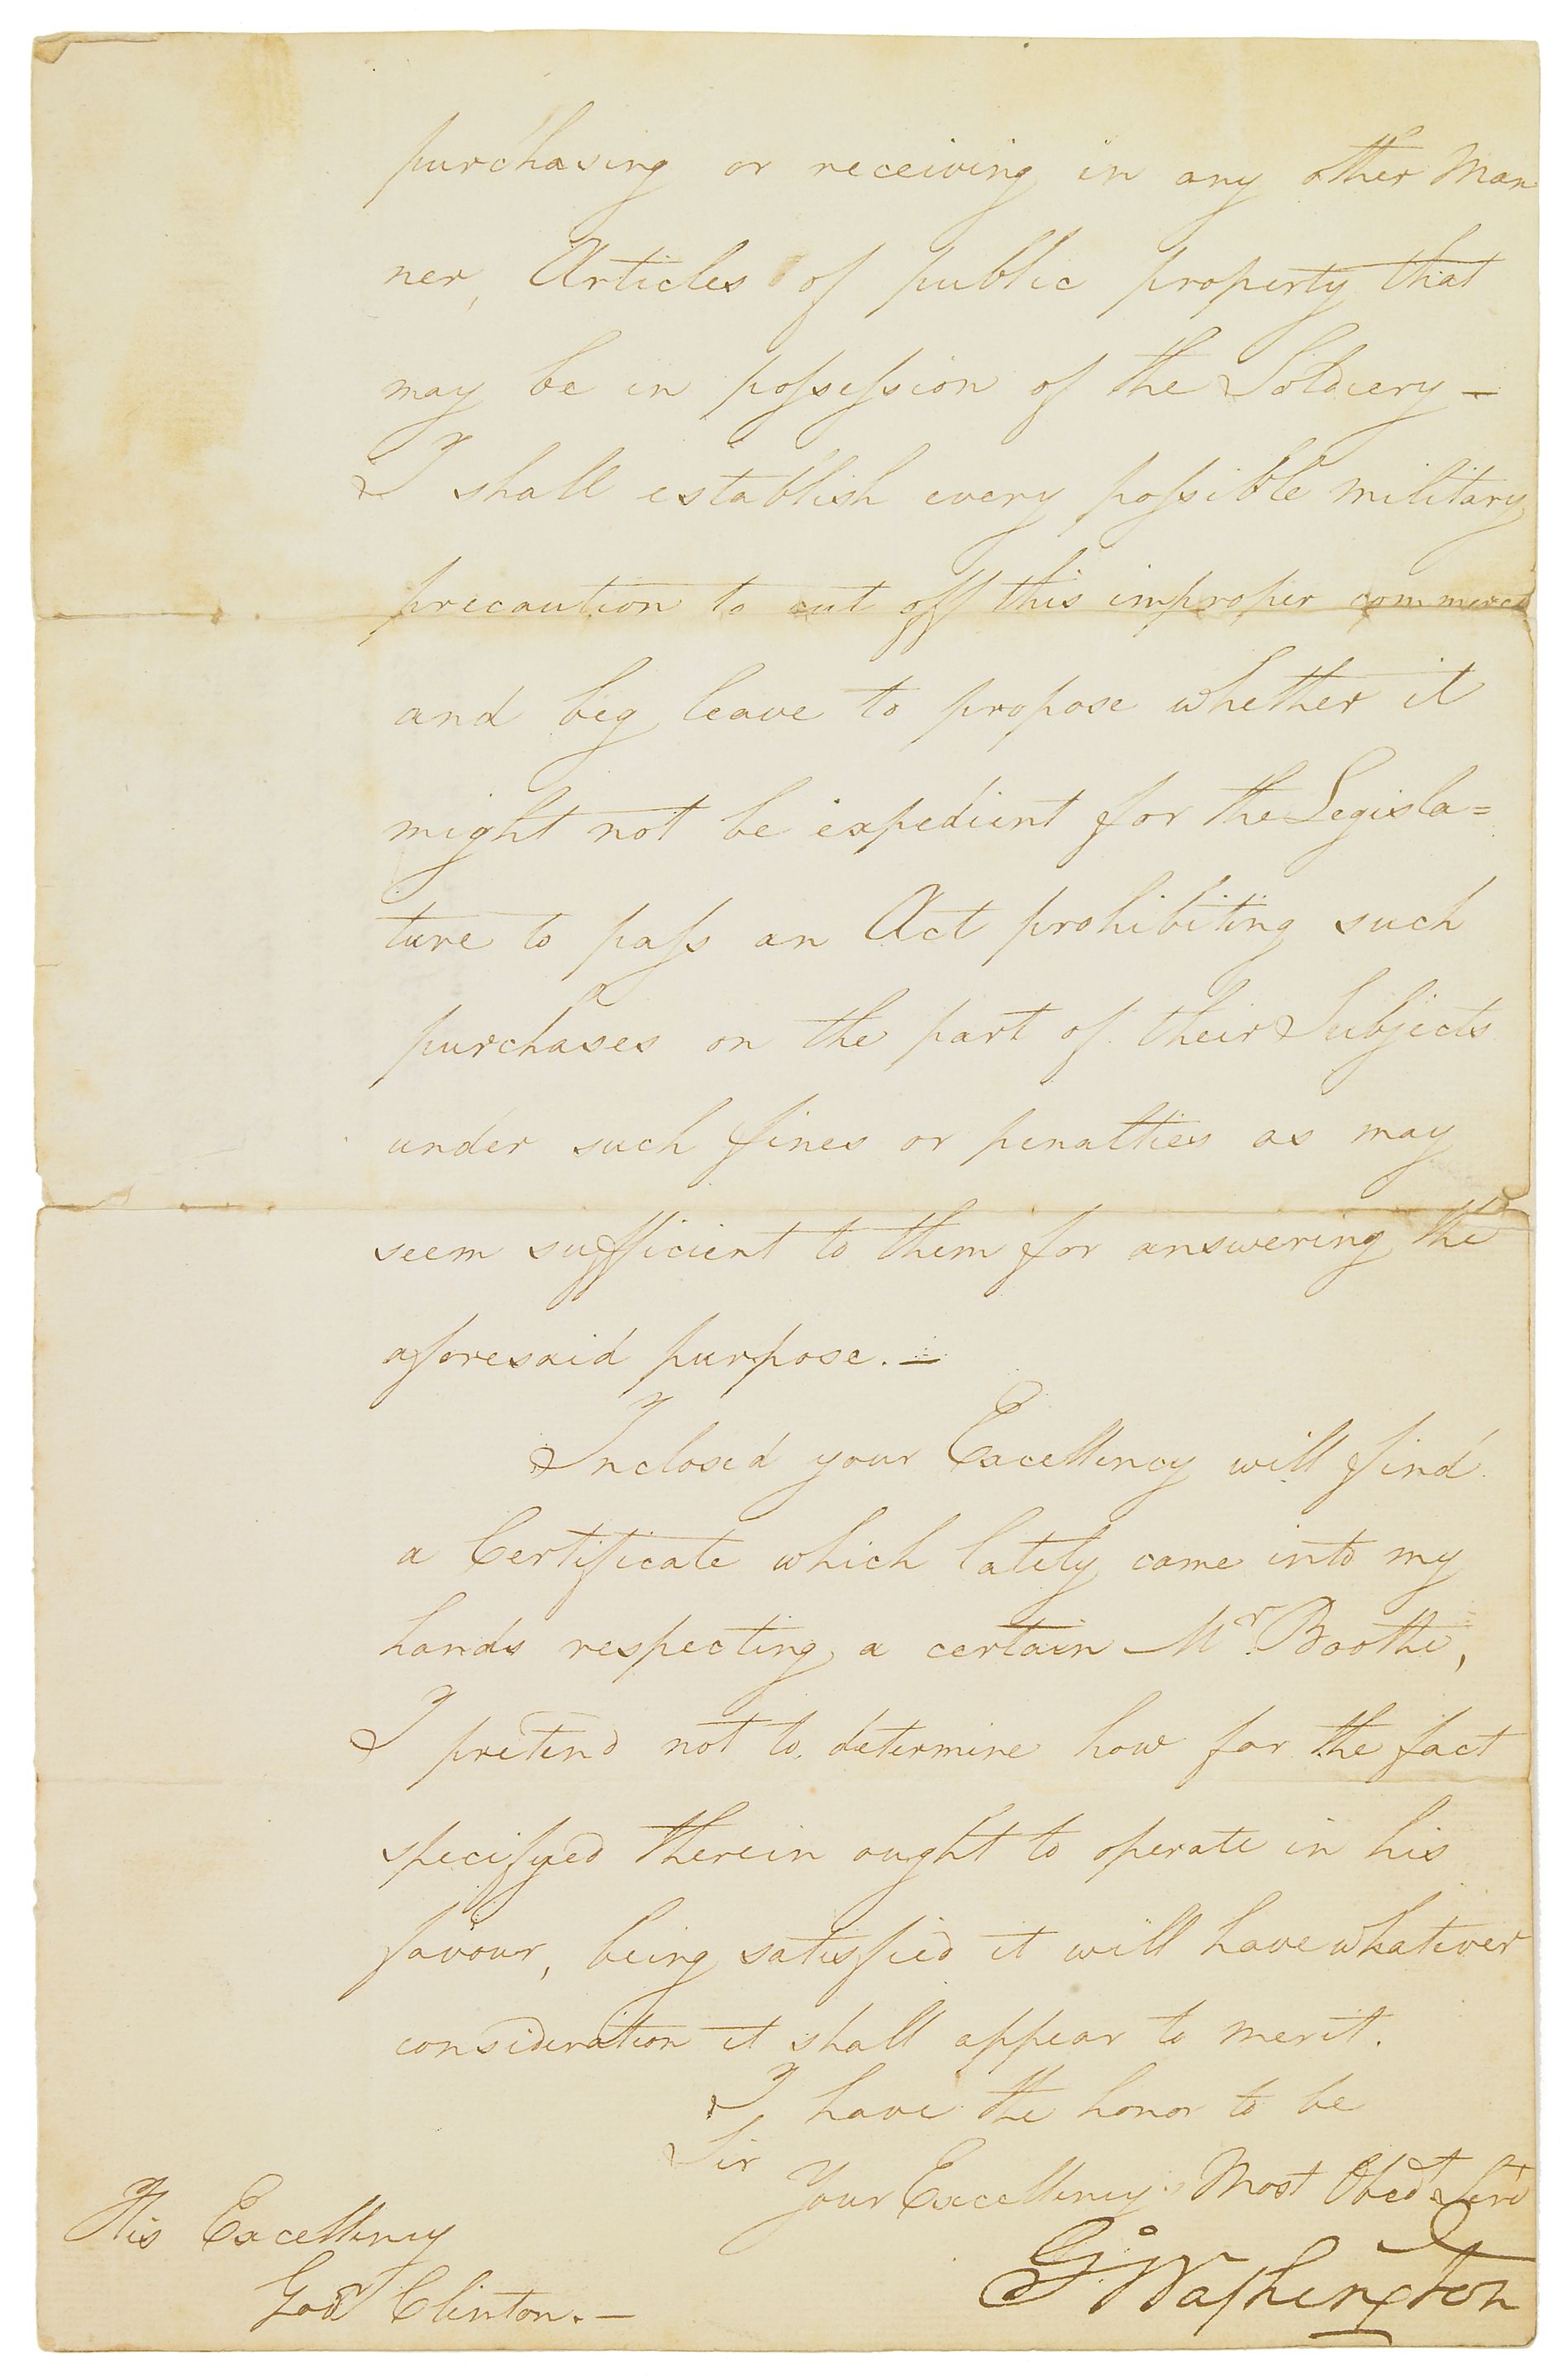 purchasing or receiving in any other Man
ner, Articles of public property that
may be in possession of the Soldiery —
I shall establish every possible military
precaution to cut off this improper commerce
and beg leave to propose whether it
might not be expedient for the Legisla=
ture to pass an Act prohibiting such
purchases on the part of their Subjects
under such fines or penalties as may
seem sufficient to them for answering the
aforesaid purpose. —
Inclosed your Excellency will find
a Certificate which lately came into my
hands respecting a certain Mr. Boothe,
I pretend not to determine how far the fact
specifyed therein ought to operate in his
favour, being satisfied it will have whatever
consideration it shall appear to merit.
I have the honor to be
Sir
Your Excellency's Most Obedt Servt
Go Washington
His Excellency
Govr Clinton. —